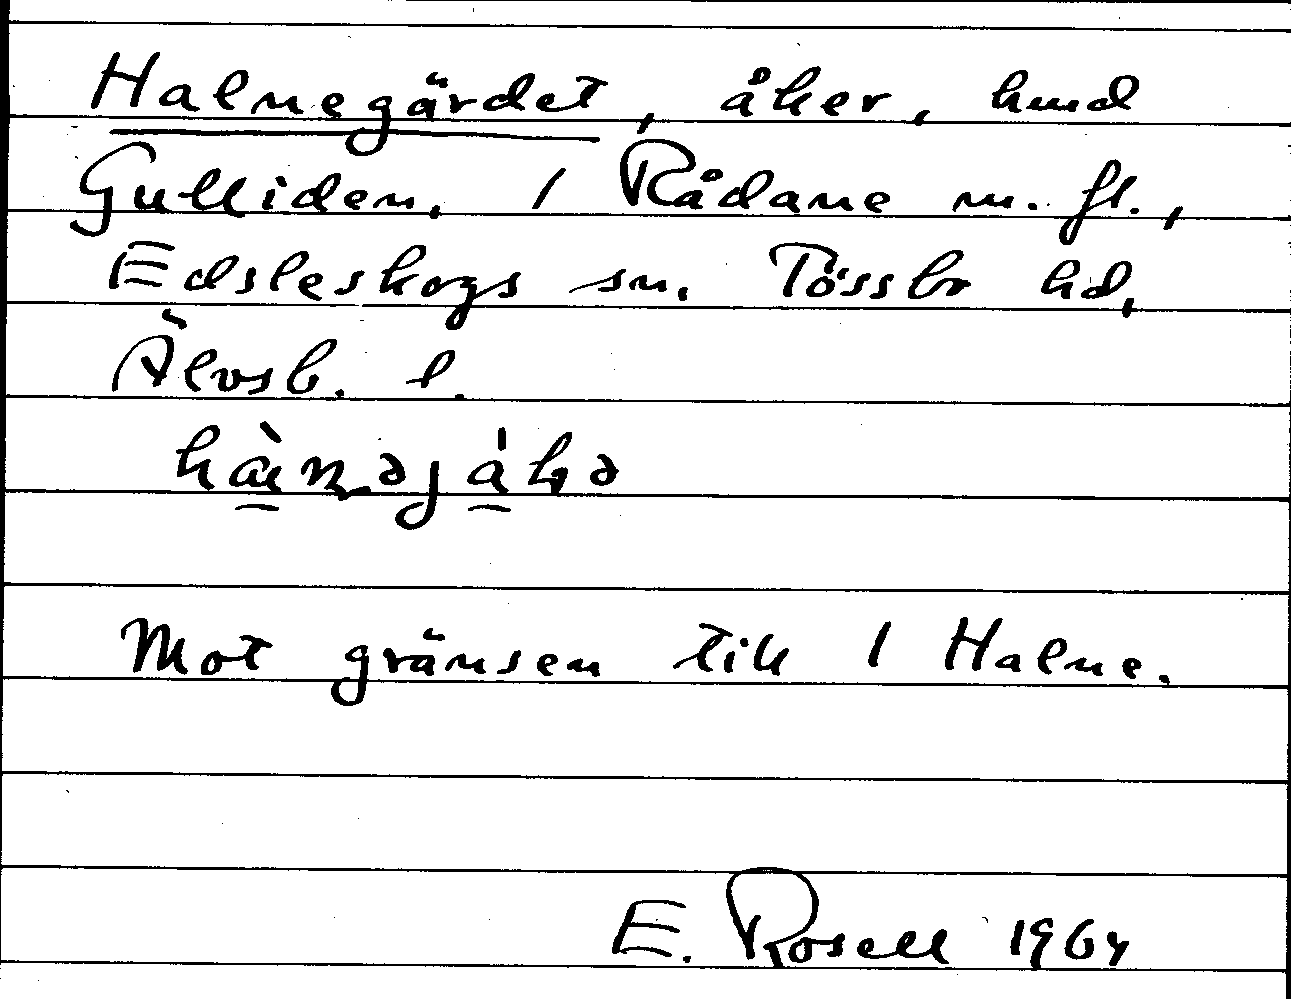 Halnegärdet, åker, hmd
Gulliden, 1 Rådane m. fl.,
Edsleskogs sn, Tössbo hd,
Älvsb. l.
Mot gränsen till 1 Halne.
E. Rosell 1964